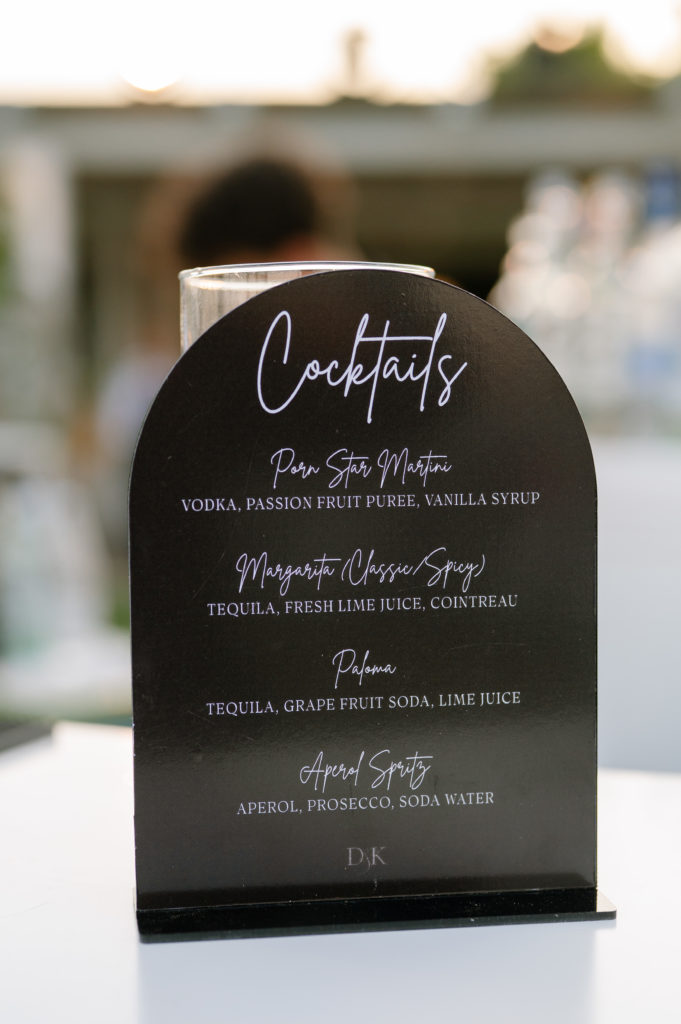 Cocktails
Porn Star Martini
VODKA, PASSION FRUIT PUREE, VANILLA SYRUP
Margarita (Classic/Spicy)
TEQUILA, FRESH LIME JUICE, COINTREAU
Paloma
TEQUILA, GRAPE FRUIT SODA, LIME JUICE
Aperol Spritz
APEROL, PROSECCO, SODA WATER
D&K